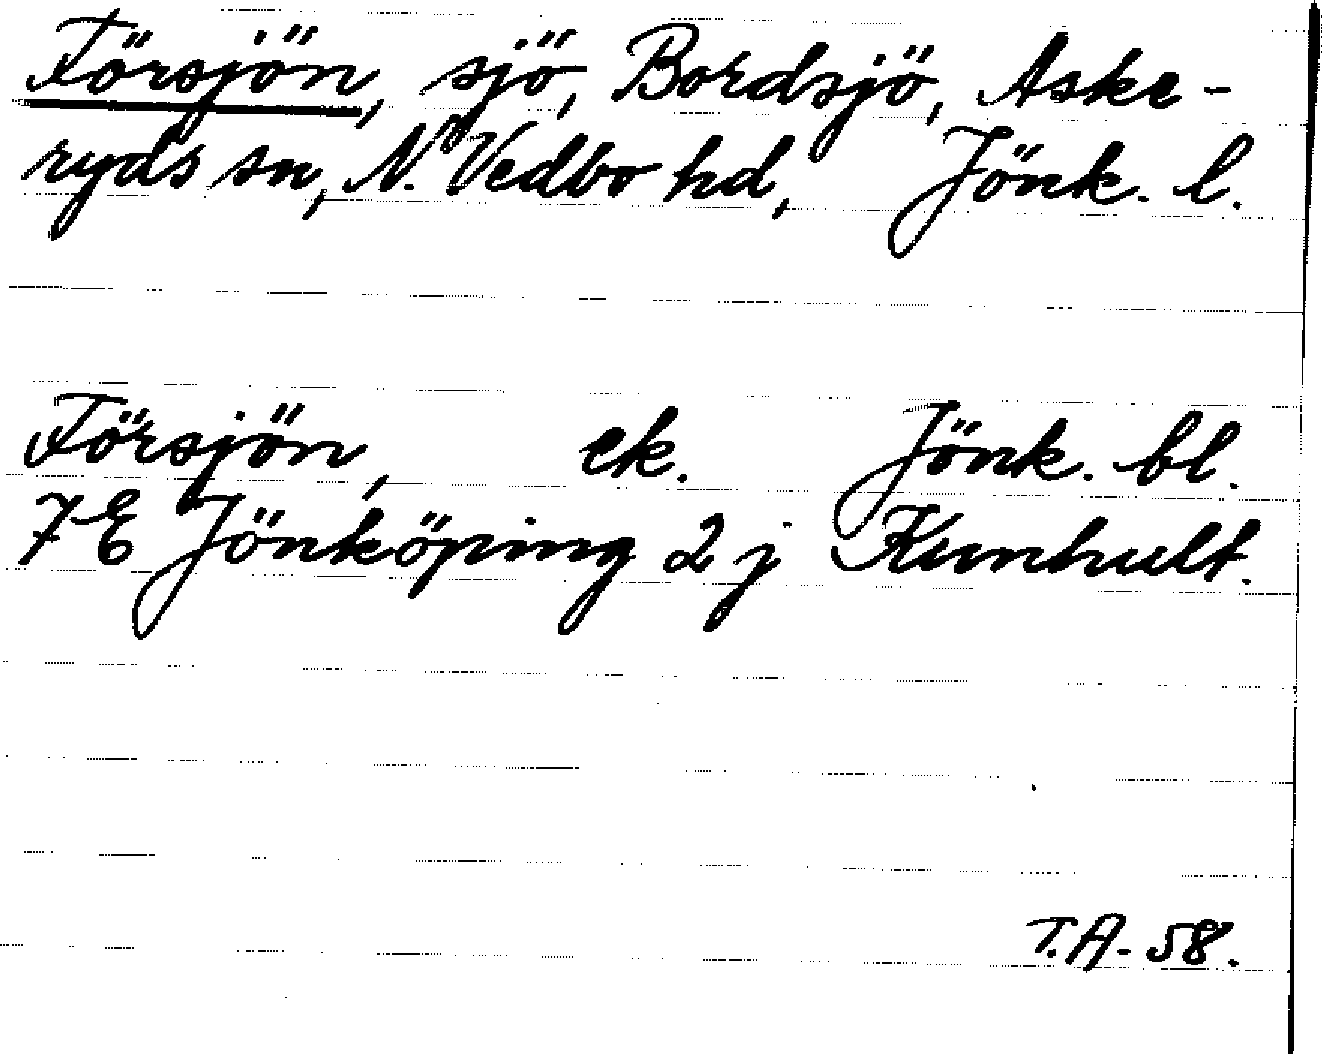 Försjön, sjö, Bordsjö, Aske-
ryds sn, N. Vedbo hd, Jönk. l.
Försjön, ek. Jönk. bl.
7 E Jönköping 2 j Kunhult.
T.A. 58.